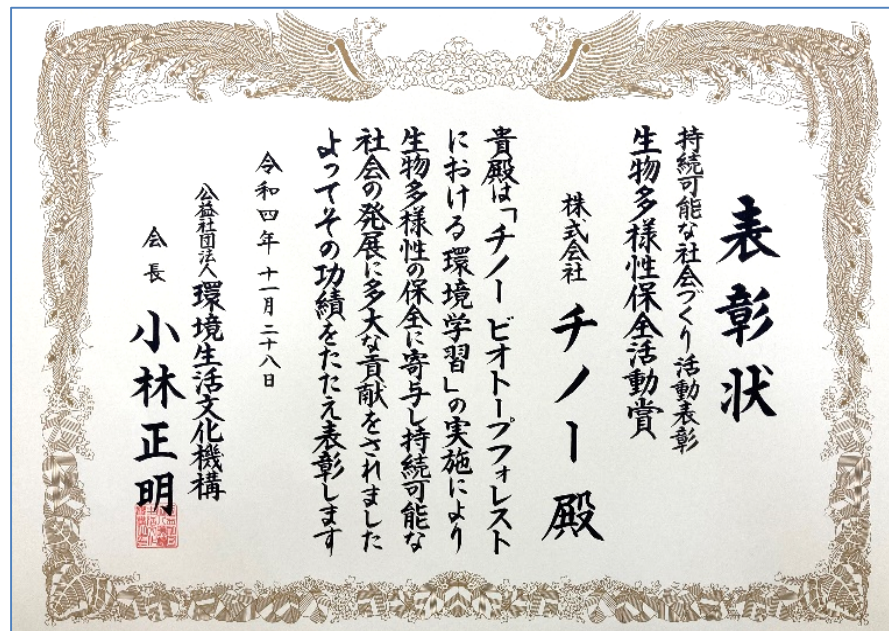 表彰状
持続可能な社会づくり活動表彰
生物多様性保全活動賞
株式会社 チノー 殿
貴殿は「チノー ビオトープフォレスト
における環境学習」の実施により
生物多様性の保全に寄与し持続可能な
社会の発展に多大な貢献をされました
よってその功績をたたえ表彰します
令和四年十一月二十八日
公益社団法人 環境生活文化機構
会長 小林正明